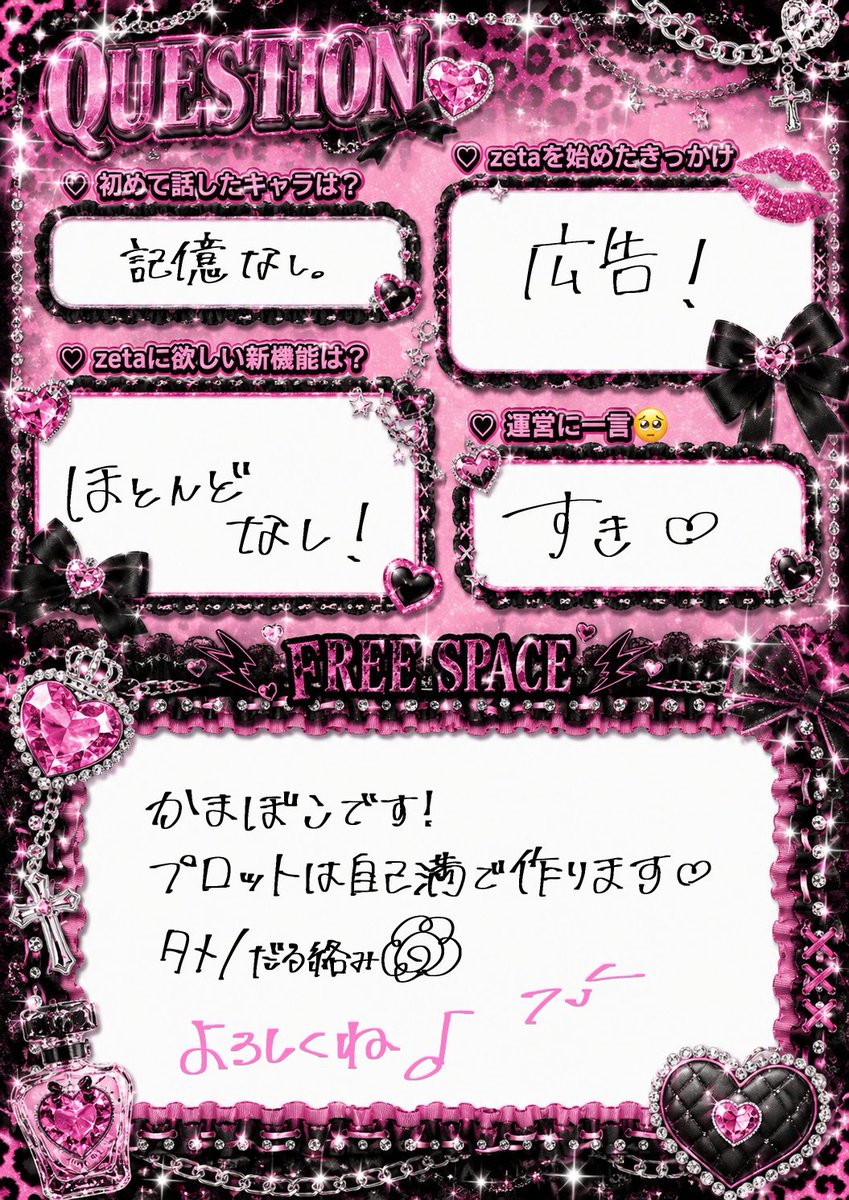 QUESTION
♡ 初めて話したキャラは？
記憶なし。
♡ zetaを始めたきっかけ
広告！
♡ zetaに欲しい新機能は？
ほとんど
なし！
♡ 運営に一言🥺
すき♡
FREE SPACE
かまぼこです！
プロットは自己満で作ります♡
タメ/だる絡み
よろしくね♪